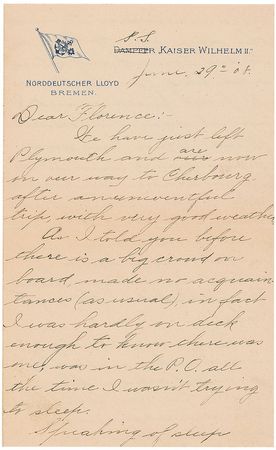 S.S.
DAMPFER "KAISER WILHELM II."
NORDDEUTSCHER LLOYD
BREMEN.
June, 29th 08.
Dear Florence:-
We have just left
Plymouth and are now
on our way to Cherbourg
after an uneventful
trip, with very good weather.
As I told you before
there is a big crowd on
board, made no acquain
tances (as usual), in fact
I was hardly on deck
enough to know there was
one, was in the P.O. all
the time I wasn't trying
to sleep.
Speaking of sleep